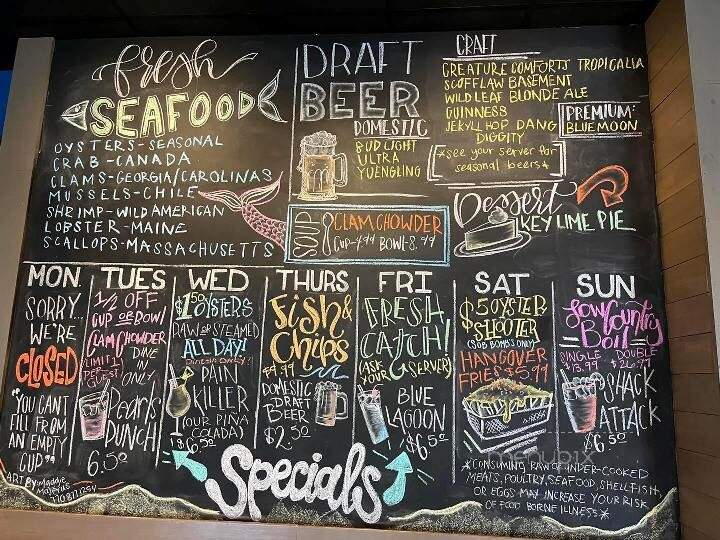 fresh
SEAFOOD
OYSTERS-SEASONAL
CRAB-CANADA
CLAMS-GEORGIA/CAROLINAS
MUSSELS-CHILE
SHRIMP-WILD AMERICAN
LOBSTER-MAINE
SCALLOPS-MASSACHUSETTS
DRAFT
BEER
DOMESTIC
BUD LIGHT
ULTRA
YUENGLING
CRAFT
CREATURE COMFORTS TROPICALIA
SCOFFLAW BASEMENT
WILD LEAF BLONDE ALE
GUINNESS
JEKYLL HOP DANG
DIGGITY
PREMIUM:
BLUE MOON
*see your server for
seasonal beers*
SOUP
CLAM CHOWDER
CUP-4.99 BOWL-8.99
Dessert
KEY LIME PIE
MON.
SORRY...
WE'RE
CLOSED
"YOU CANT
FILL FROM
AN EMPTY
CUP"
ART BY: Maddie
TUES
1/2 OFF
CUP OR BOWL
CLAM CHOWDER
LIMIT 1
PER GUEST
DINE
IN
ONLY
Pearl's
PUNCH
6.50
WED
$1.50 OYSTERS
RAW OR STEAMED
ALL DAY!
PAIN
KILLER
(OUR PIÑA
COLADA)
$6.50
THURS
Fish &
Chips
$9.99
DOMESTIC
DRAFT
BEER
$2.50
FRI
FRESH
CATCH!
(ASK
YOUR SERVER)
BLUE
LAGOON
$6.50
SAT
$5 OYSTER
SHOOTER
(SOB BOMBS ONLY)
HANGOVER
FRIES $5.99
*CONSUMING RAW OR UNDER-COOKED
MEATS, POULTRY, SEAFOOD, SHELLFISH,
OR EGGS MAY INCREASE YOUR RISK
OF FOOD BORNE ILLNESS*
SUN
Low Country
Boil
SINGLE DOUBLE
$13.99 $26.99
SHACK
ATTACK
$6.50
Specials
menupix